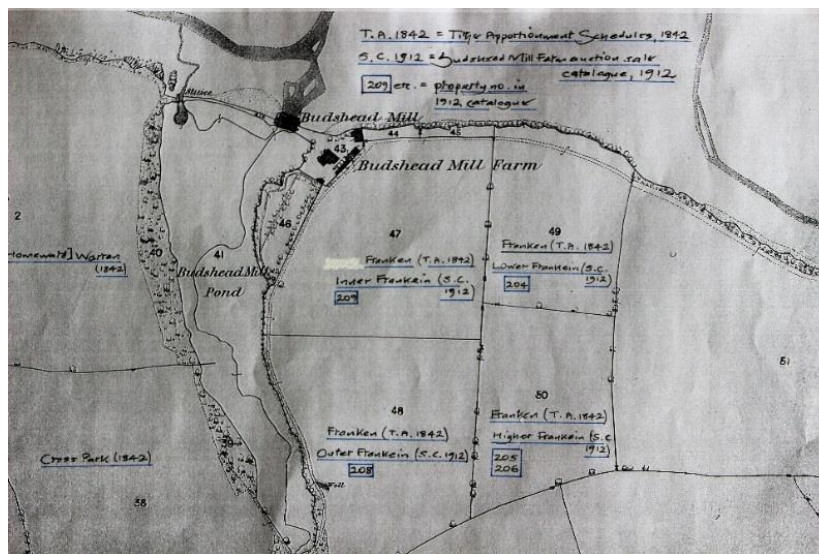 T.A. 1842 = Tithe Apportionment Schedules, 1842
S.C. 1912 = Budshead Mill Farm auction sale
catalogue, 1912
209 etc. = property no. in
1912 catalogue
Sluice
Budshead Mill
43
44
45
Budshead Mill Farm
46
2
40
41
47
49
Homeward] Warren
(1842)
Budshead Mill
Pond
Franken (T.A. 1842)
Inner Frankein (S.C.
1912)
209
Franken (T.A. 1842)
Lower Frankein (S.C.
1912)
204
51
48
50
Franken (T.A. 1842)
Outer Frankein (S.C. 1912)
208
Franken (T.A. 1842)
Higher Frankein (S.C
1912)
205
206
Cross Park (1842)
39
Well
38